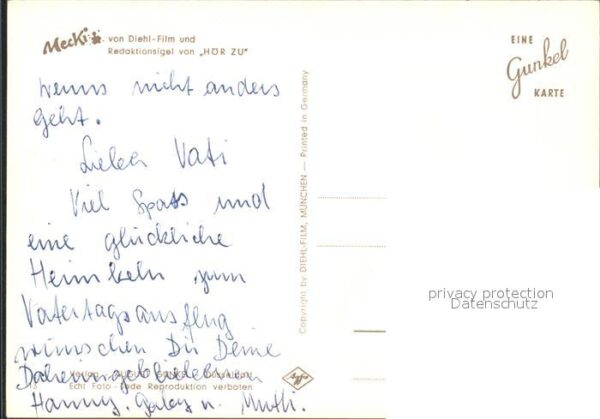 Mecki von Diehl-Film und
Redaktionsigel von „HÖR ZU"
wenns nicht anders
geht.
Lieber Vati
Viel Spass und
eine glückliche
Heimkehr zum
Vatertagsausflug
wünschen Dir Deine
Daheimgebliebenen
Hanny, Gaby u. Mutti.
Verlag
Echt Foto - Jede Reproduktion verboten
Copyright by DIEHL-FILM, MÜNCHEN — Printed in Germany
EINE
Gunkel
KARTE
privacy protection
Datenschutz